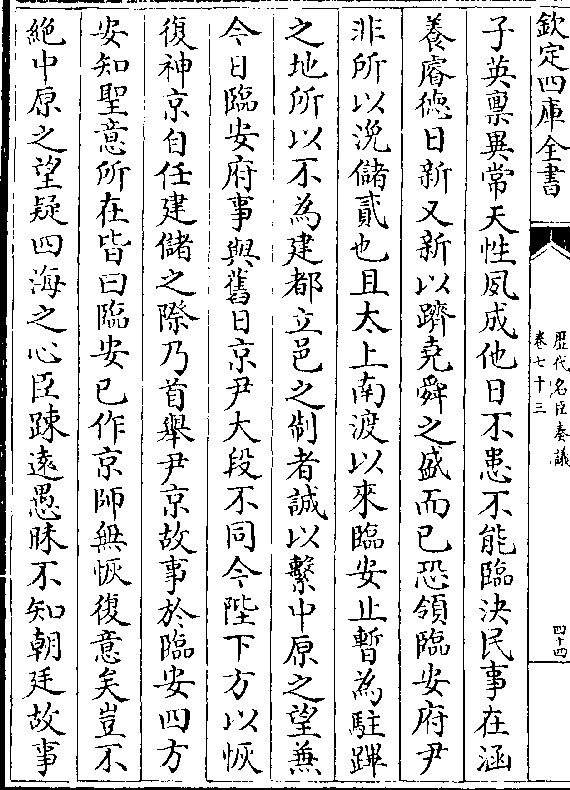 欽定四庫全書
歷代名臣奏議
卷七十三
四十四
子英禀異常天性夙成他日不患不能臨決民事在涵
養睿德日新又新以躋堯舜之盛而已恐領臨安府尹
非所以浼儲貳也且太上南渡以來臨安止暫為駐蹕
之地所以不為建都立邑之制者誠以繫中原之望無
今日臨安府事與舊日京尹大段不同今陛下方以恢
復神京自任建儲之際乃首舉尹京故事於臨安四方
安知聖意所在皆曰臨安已作京師無恢復意矣豈不
絶中原之望疑四海之心臣踈遠愚昧不知朝廷故事